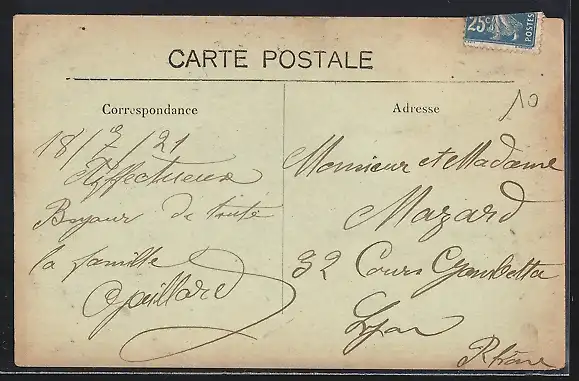 25c
POSTES
CARTE POSTALE
Correspondance
Adresse
10
18/7/21
Affectueux
Bonjour de toute
la famille
Monsieur et Madame
Mazard
32 Cours Gambetta
Lyon
Rhône